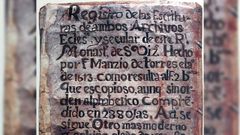 Registro de las Escrittu
ras de ambos Archivos
Ecles. y secular de este R.
Monast. de S. Diz. Hecho
por f. Manzio de torres el a
de 1613. Como resulta al f. 2 b
que es copioso, aunq sin or
den alphabetico. Compre
dido en 238 ojas. A.t. se
sigue Otro mas moderno